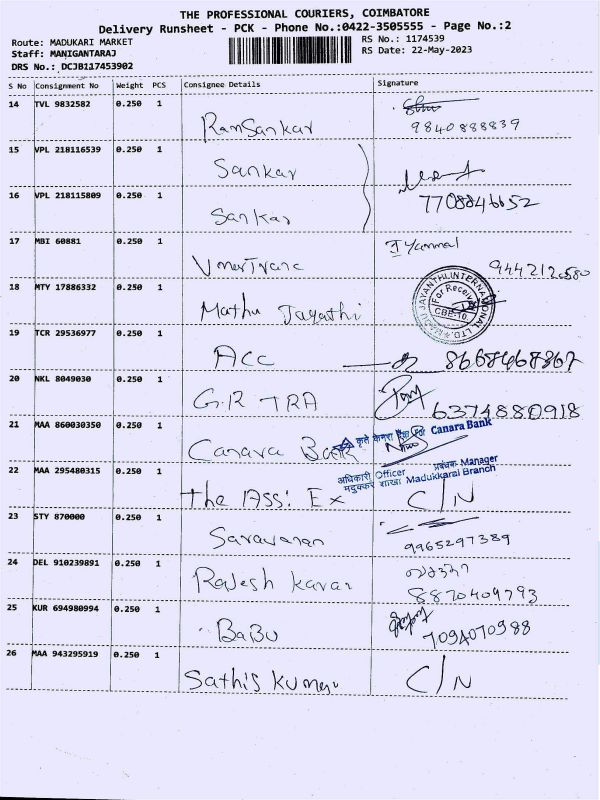 THE PROFESSIONAL COURIERS, COIMBATORE
Delivery Runsheet - PCK - Phone No.:0422-3505555 - Page No.:2
Route: MADUKARI MARKET
RS No.: 1174539
Staff: MANIGANTARAJ
RS Date: 22-May-2023
DRS No.: DCJB117453902
S No Consignment No Weight PCS Consignee Details Signature
14 TVL 9832582 0.250 1
RamSankar 9840888839
15 VPL 218116539 0.250 1
Sankar
16 VPL 218115809 0.250 1
Sankar 7708846652
17 MBI 60881 0.250 1
9442120580
18 MTY 17886332 0.250 1
Mathu Jayathi
JAYANTHI INTERNATIONAL LTD.
For Receiv
CBE-10
19 TCR 29536977 0.250 1
ACC 8668468867
20 NKL 8049030 0.250 1
G.R TRA 6374880918
21 MAA 860030350 0.250 1
Canara Bank
कृते केनरा बैंक For Canara Bank
22 MAA 295480315 0.250 1
अधिकारी Officer प्रबंधक Manager
मदुक्करै शाखा Madukkarai Branch
The Assi Ex C/N
23 STY 870000 0.250 1
Saravanan 9965297389
24 DEL 910239891 0.250 1
Rajesh Kavar 8870409793
25 KUR 694980994 0.250 1
BaBu 7094070988
26 MAA 943295919 0.250 1
Sathis Kumar C/N